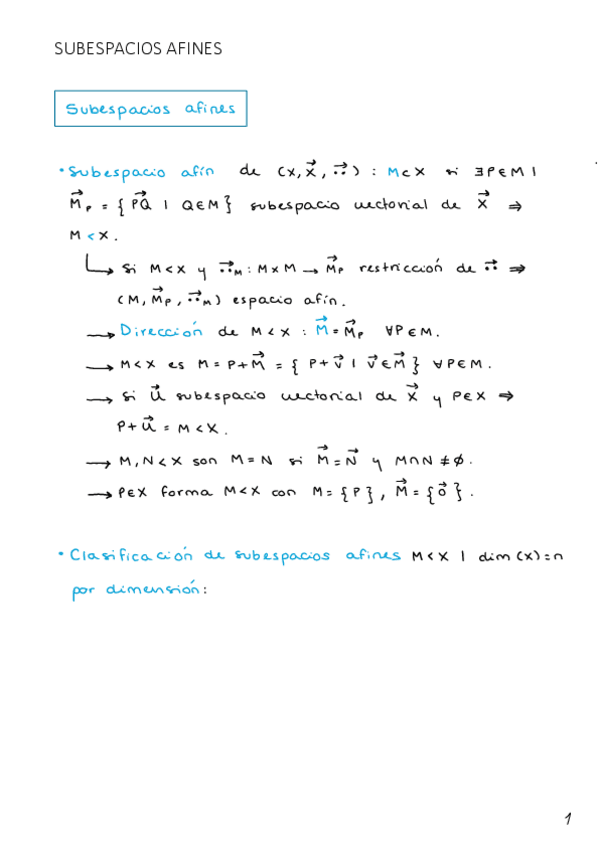 SUBESPACIOS AFINES
Subespacios afines
• Subespacio afín de (X, X⃗, ⃗··) : M⊂X si ∃P∈M |
M⃗_P = { P⃗Q | Q∈M } subespacio vectorial de X⃗ ⇒
M < X.
↳ Si M<X y ⃗··_M : M×M → M⃗_P restricción de ⃗·· ⇒
(M, M⃗_P, ⃗··_M) espacio afín.
→ Dirección de M<X : M⃗ = M⃗_P ∀P∈M.
→ M<X es M = P+M⃗ = { P+v⃗ | v⃗∈M⃗ } ∀P∈M.
→ Si U⃗ subespacio vectorial de X⃗ y P∈X ⇒
P+U⃗ = M<X.
→ M,N<X son M=N si M⃗=N⃗ y M∩N≠∅.
→ P∈X forma M<X con M={P}, M⃗={0⃗}.
• Clasificación de subespacios afines M<X | dim(X)=n
por dimensión:
1